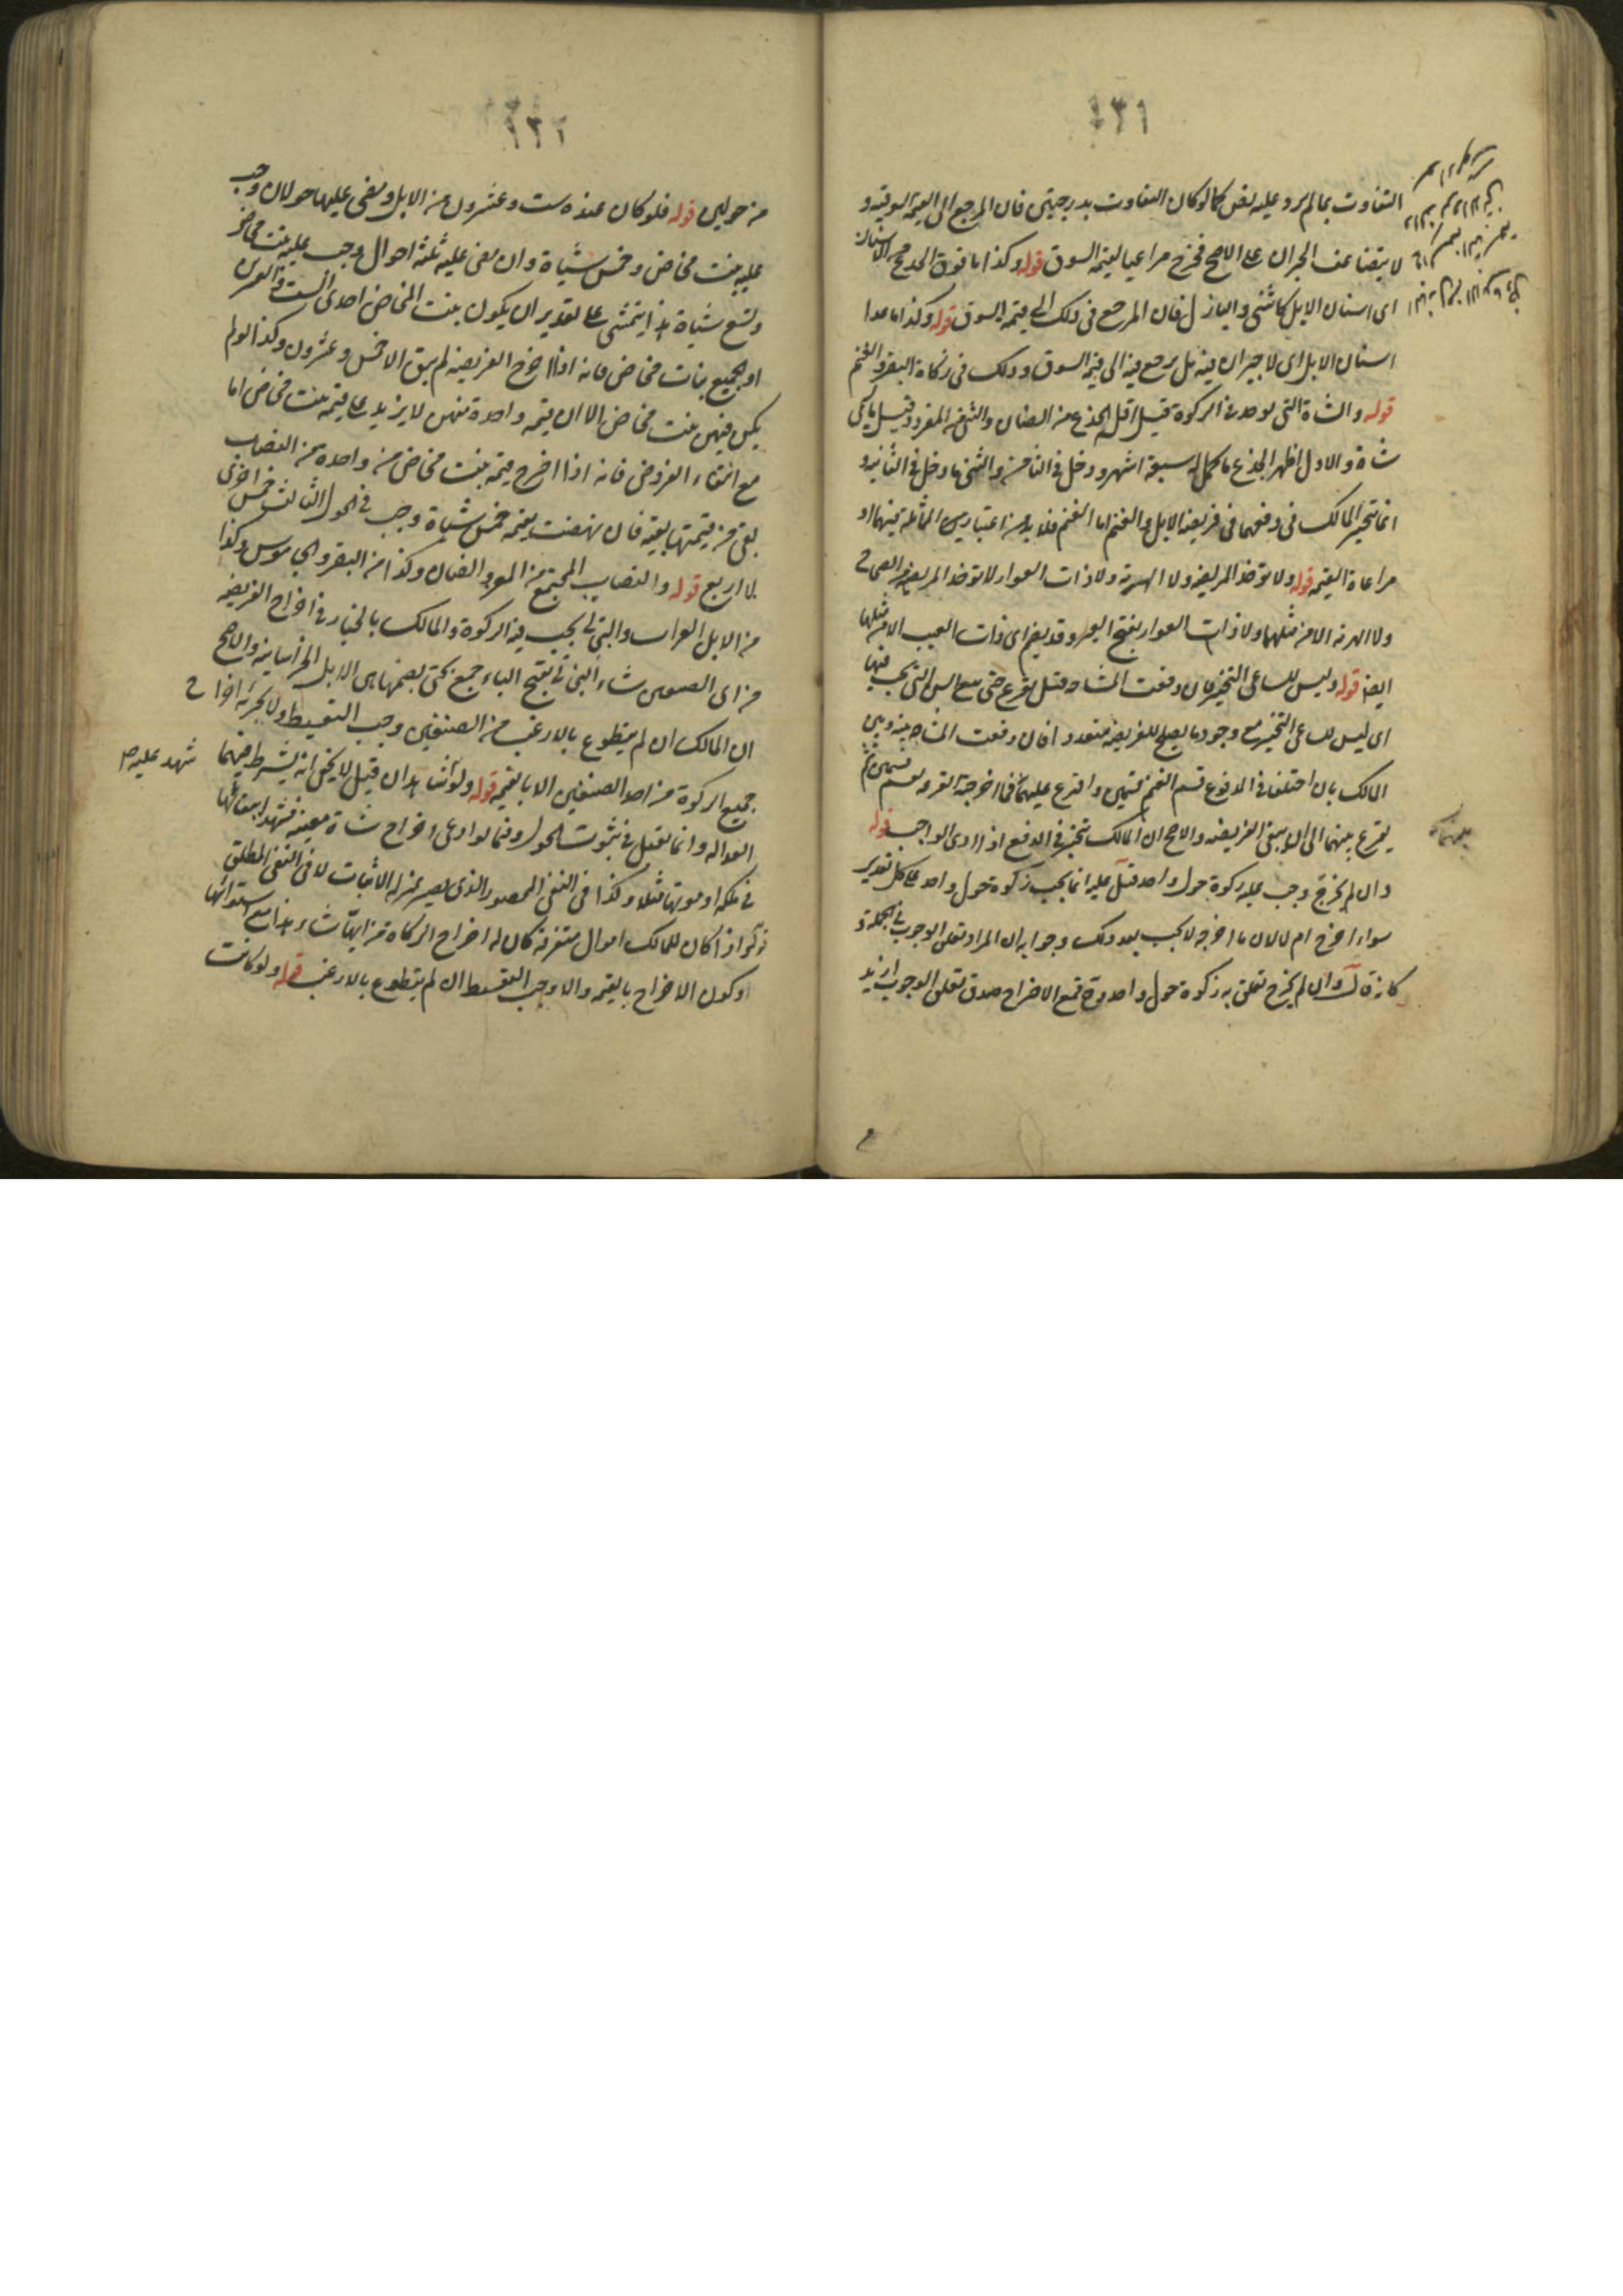 ١٣١
التفاوت بما لم يرد عليه نص كما لو كان التفاوت بدرجتين فان المرجع الى القيمة السوقية و
لا يتضاعف الجبران على الاصح فيخرج مراعيا لقيمة السوق قوله وكذا ما فوق الجذع من الاسنان
اى اسنان الابل كالثنى والبازل فان المرجع فى ذلك الى قيمة السوق قوله وكذا ما عدا
اسنان الابل اى لا جبران فيه بل يرجع فيه الى قيمة السوق وذلك فى زكاة البقر والغنم
قوله والشاة التى توخذ فى الزكوة قيل اقله الجذع من الضان والثنى من المعز وقيل ما يسمى
شاة والاول اظهر الجذع ما كمل له سبعة اشهر ودخل فى الثامن والثنى ما دخل فى الثانية و
انما يتخير المالك فى دفعهما فى فريضة الابل والغنم اما الغنم فلا بد من اعتبار المماثلة بينهما او
مراعاة القيمة قوله ولا توخذ المريضة ولا الهرمة ولا ذات العوار لا توخذ المريضة من الصحاح
ولا الهرمة الا من مثلها ولا ذات العوار بفتح العين وقد يضم اى ذات العيب الا من مثلها
ايضا قوله وليس للساعى التخير فان وقعت المشاحة قيل يقرع حتى يبقى السن التى يجب فيها
اى ليس للساعى التخير مع وجود ما يصلح للفريضة متعدد افان وقعت المشاحة بينه وبين
المالك بان اختلفا فى المدفوع قسم الغنم قسمين واقرع عليهما فما اخرجته القرعة قسم قسمين ثم
يقرع بينهما الى ان يبقى الفريضة والاصح ان المالك يتخير فى الدفع اذا ادى الواجب قوله
وان لم يخرج وجب عليه زكوة حول واحد قيل عليه انما يجب زكوة حول واحد على كل تقدير
سواء اخرج ام لا لان ما اخرجه لا يجب بعد ذلك وجوابه ان المراد تعلق الوجوب فى الجملة ذ
كانه قال وان لم يخرج تعلق به زكوة حول واحد ومع الاخراج صدق تعلق الوجوب ازيد
١٣٢
من حولين قوله فلو كان عنده ست وعشرون من الابل ومضى عليها حولان وجب
عليه بنت مخاض وخمس شياة وان مضى عليه ثلثة احوال وجب عليه بنت مخاض
وتسع شياة هذا يتمشى على تقدير ان يكون بنت المخاض احدى الست والعشرين
او الجميع بنات مخاض فانه اذا اخرج الفريضة لم يبق الا خمس وعشرون وكذا لو لم
يكن فيهن بنت مخاض الا ان قيمة واحدة منهن لا يزيد على قيمة بنت مخاض اما
مع انتفاء الفروض فانه اذا اخرج قيمة بنت مخاض من واحدة من النصاب
بقى من قيمتها بقية فان نهضت بقيمة خمس شياة وجب فى الحول الثالث خمس اخرى
لا اربع قوله والنصاب المجتمع من المعز والضان وكذا من البقر والجاموس وكذا
من الابل العراب والبخاتى يجب فيه الزكوة والمالك بالخيار فى اخراج الفريضة
من اى الصنفين شاء البخاتى بفتح الباء جمع بختى بضمها هى الابل الخراسانية والاصح
ان المالك ان لم يتطوع بالارغب من الصنفين وجب التقسيط ولا يجزئه اخراج
جميع الزكوة من احد الصنفين الا بالقيمة قوله ولو شهد عليه
العدالة وانما تقبل فى ثبوت الحول وفيما لو ادعى اخراج شاة معينة فشهدا ببقائها
فى ملكه او موتها مثلا وكذا فى النفى المحصور الذى يصير بمنزلة الاثبات لا فى النفى المطلق
قوله اذا كان للمالك اموال متفرقة كان له اخراج الزكاة من ايها شاء هذا مع استوائها
او كون الاخراج بالقيمة والا وجب التقسيط ان لم يتطوع بالارغب قوله ولو كانت